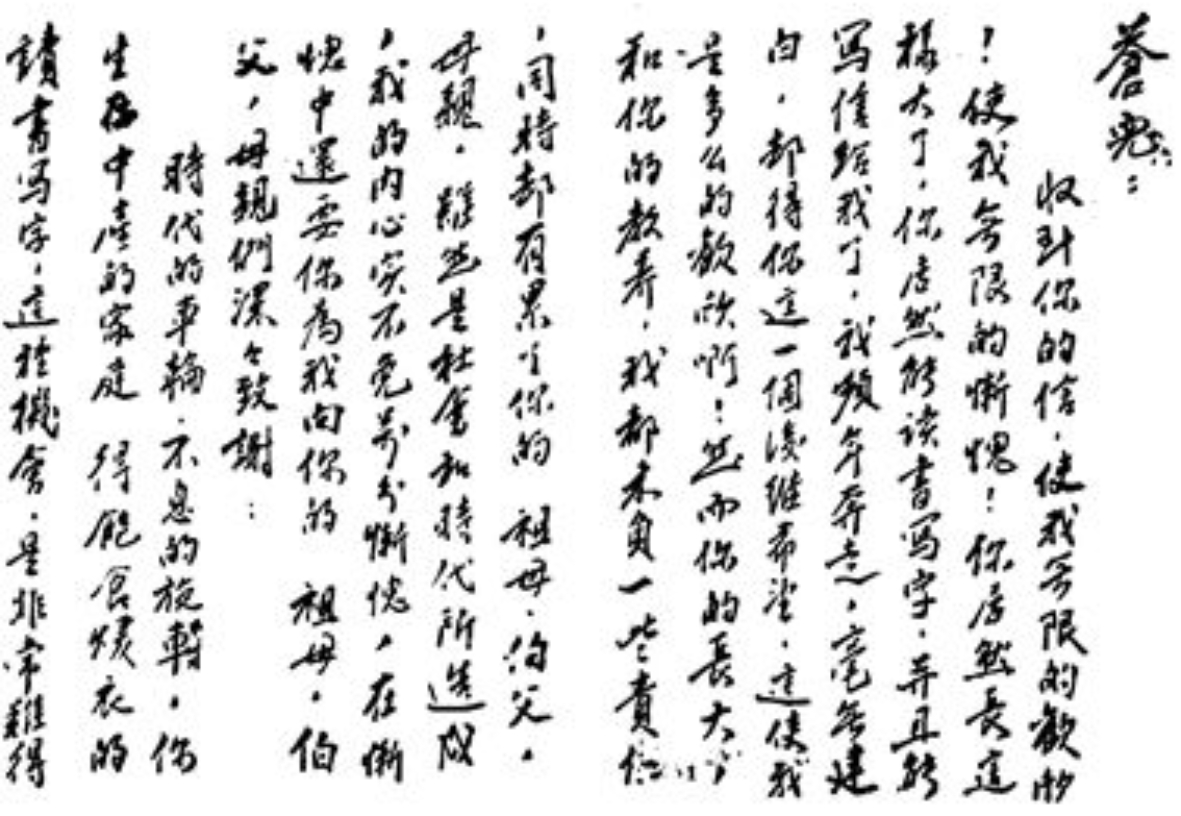 蒼兒:
收到你的信,使我無限的歡欣
!使我無限的慚愧!你居然長這
樣大了,你居然能读書写字,并且能
写信给我了,我頻年奔走,毫無建
白,却得你這一個後继希望,這使我
是多么的歡欣啊!然而你的長大
和你的教养,我都未負一些責任
,同時却有累了你的 祖母,伯父,
母親,雖然是社會和時代所造成
,我的内心实不免萬分慚愧,在慚
愧中還要你為我向你的 祖母,伯
父,母親們深々致謝:
時代的車輪,不息的旋轉,你
生在中產的家庭 得飽食煖衣的
讀書写字,這種機會,是非常難得